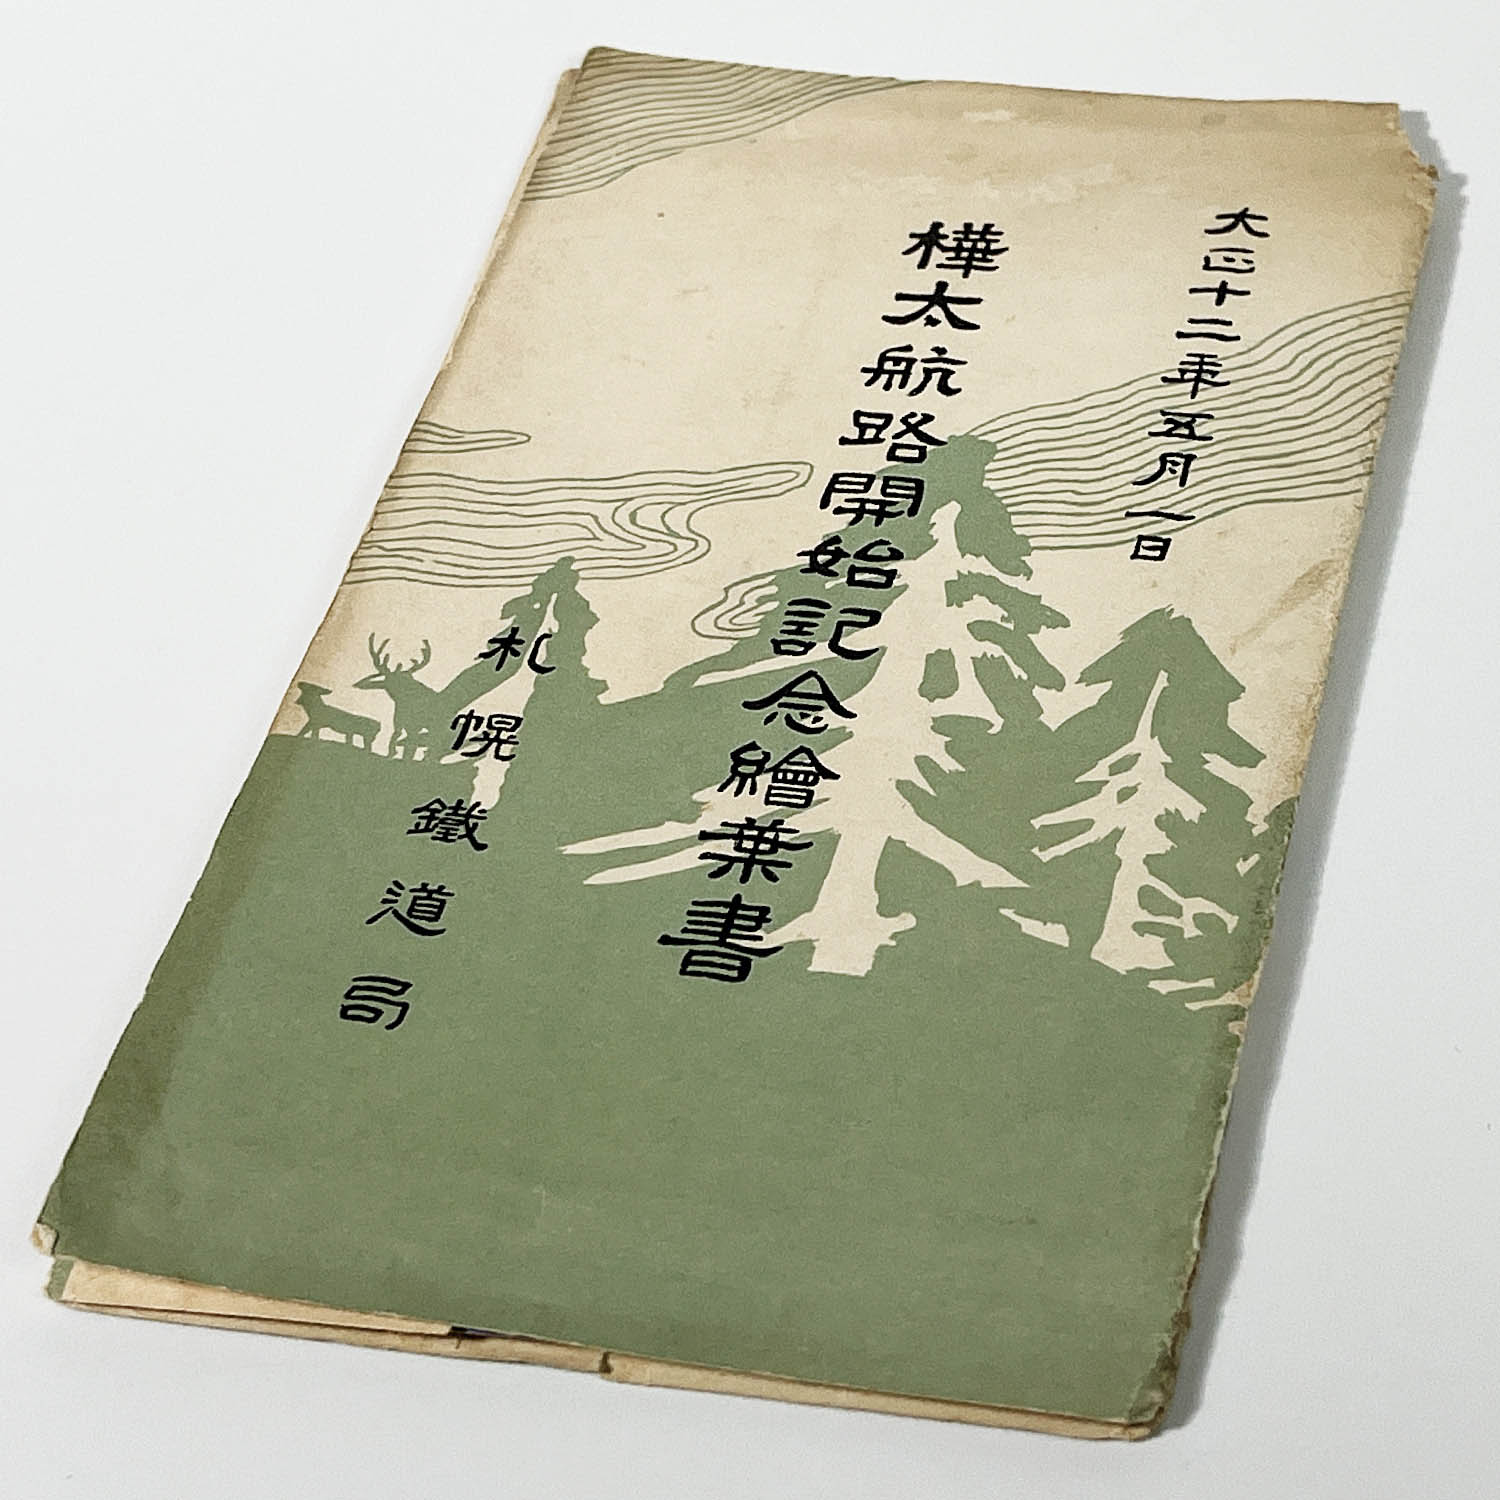 大正十二年五月一日
樺太航路開始記念繪葉書
札幌鐵道局